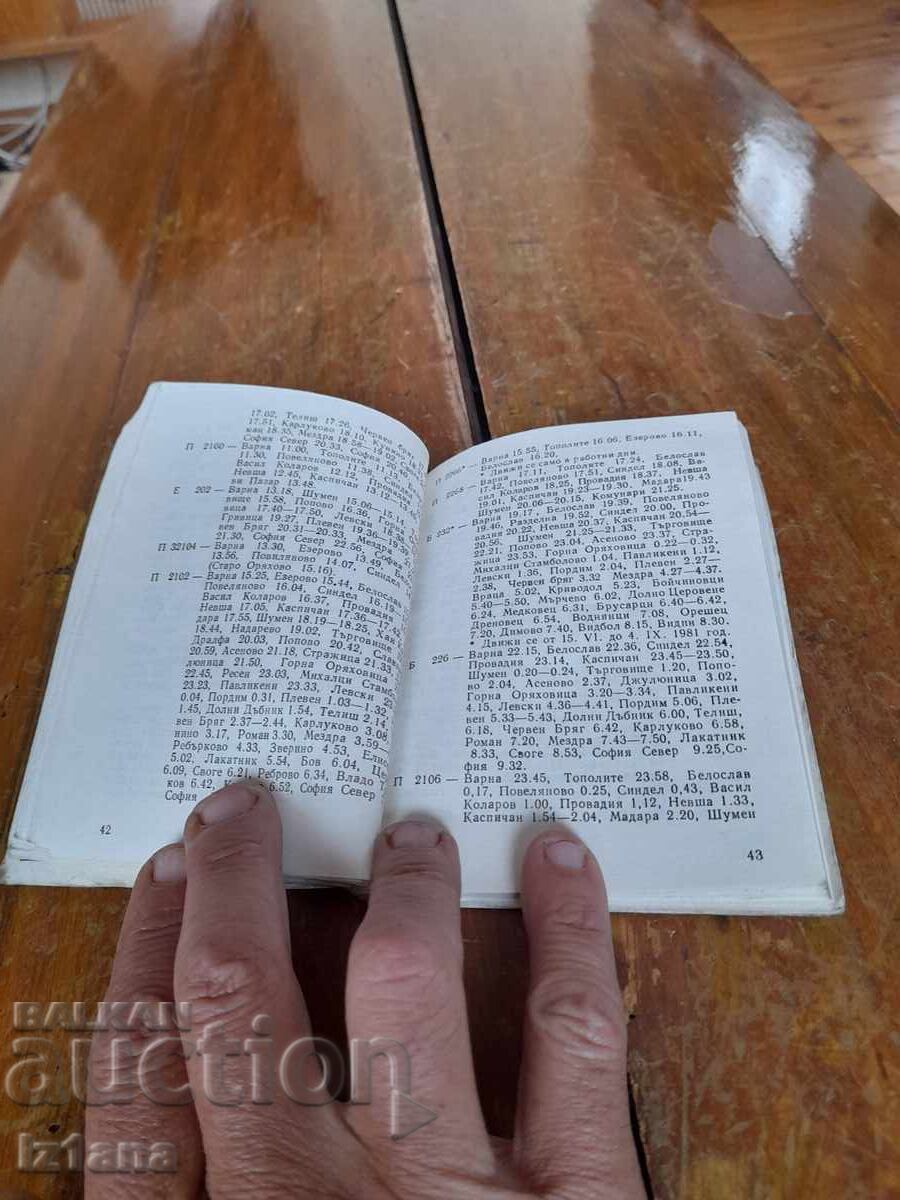 17.02, Телиш 17.26, Червен бряг
17.51, Карлуково 18.10, Кунино
ман 18.35, Мездра 18.58—
София Север 20.33, София 20
П 2160 — Варна 11.00, Тополите
11.30, Повеляново 11.38, Синдел
Васил Коларов 12.12, Провадия
Невша 12.45, Каспичан 13.12—
ви Пазар 13.48.
Е 202 — Варна 13.18, Шумен 15.06—15.14,
вище 15.58, Попово 16.38,
17.40—17.50, Левски
Гривица 19.27, Плевен 19.36—19.38,
вен Бряг 20.31—20.33, Мездра
21.30, София Север 22.56, София
П 32104 — Варна 13.30, Езерово 13.49,
13.56, Повиляново 14.07, Синдел
(Старо Оряхово 15.16).
П 2102 — Варна 15.25, Езерово 15.44, Белослав
Повеляново 16.04, Синдел 16.19,
Васил Коларов 16.37, Провадия
Невша 17.05, Каспичан 17.36—17.42,
дара 17.55, Шумен 18.19—18.25, Хан
18.44, Надарево 19.02, Търговище
Дралфа 20.03, Попово 20.42,
20.59, Асеново 21.18, Стражица 21.33,
люница 21.50, Горна Оряховица
22.45, Ресен 23.03, Михалци
23.23, Павликени 23.33, Левски
0.04, Пордим 0.31, Плевен 1.03—1.32,
1.45, Долни Дъбник 1.54, Телиш 2.14,
вен Бряг 2.37—2.44, Карлуково 3.08,
нино 3.17, Роман 3.30, Мездра 3.59—
Ребърково 4.33, Зверино 4.53,
5.02, Лакатник 5.54, Бов 6.04,
6.09, Своге 6.21, Реброво 6.34, Владо
ков 6.42, 6.52, София Север
София
42
П 2266* — Варна 15.55, Тополите 16.06, Езерово 16.11,
Белослав 16.20.
Движи се само в работни дни.
П 2268 — Варна 17.11, Тополите 17.24, Белослав
17.42, Повеляново 17.51, Синдел 18.08, Ва-
сил Коларов 18.25, Провадия 18.37, Невша
19.01, Каспичан 19.23—19.30, Мадара 19.43
Шумен 20.06—20.15, Комунари 21.25.
Б 232* — Варна 19.17, Белослав 19.39, Повеляново
19.46, Разделна 19.52, Синдел 20.00, Про-
вадия 20.22, Невша 20.37, Каспичан 20.54—
20.56, Шумен 21.25—21.33, Търговище
22.21, Попово 23.04, Асеново 23.35, Стра-
жица 23.51, Горна Оряховица 0.22—0.32,
Михалци Стамболово 1.04, Павликени 1.12,
Левски 1.36, Пордим 2.04, Плевен 2.27—
2.38, Червен бряг 3.32 Мездра 4.27—4.37.
Враца 5.02, Криводол 5.23, Бойчиновци
5.40—5.50, Мърчево 6.02, Долно Церовене
6.24, Медковец 6.31, Брусарци 6.40—6.42,
Дреновец 6.54, Воднянци 7.08, Орешец
7.20, Димово 7.40, Видбол 8.15, Видин 8.30.
Движи се от 15. VI. до 4. IX. 1981 год.
Б 226 — Варна 22.15, Белослав 22.36, Синдел 22.54,
Провадия 23.14, Каспичан 23.45—23.50,
Шумен 0.20—0.24, Търговище 1.20, Попо-
во 2.04, Асеново 2.37, Джулюница 3.02,
Горна Оряховица 3.20—3.34, Павликени
4.15, Левски 4.36—4.41, Пордим 5.06, Пле-
вен 5.33—5.43, Долни Дъбник 6.00, Телиш,
6.18, Червен Бряг 6.42, Карлуково 6.58,
Роман 7.20, Мездра 7.43—7.50, Лакатник
8.33, Своге 8.53, София Север 9.25, Со-
фия 9.32.
П 2106 — Варна 23.45, Тополите 23.58, Белослав
0,17, Повеляново 0.25, Синдел 0,43, Васил
Коларов 1.00, Провадия 1,12, Невша 1.33,
Каспичан 1.54—2.04, Мадара 2.20, Шумен
43
BALKAN
auction
iz1ana